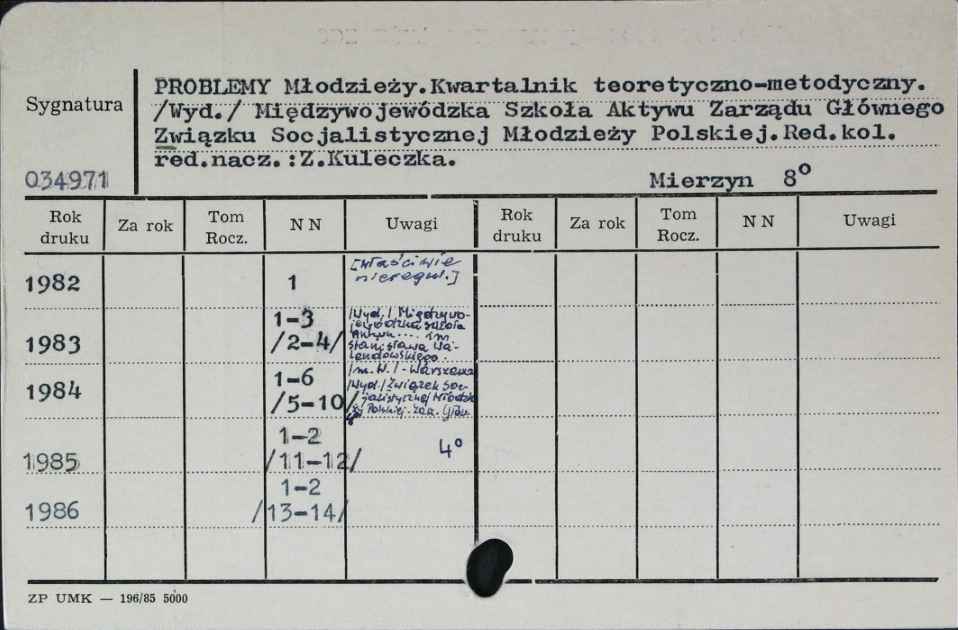 PROBLEMY Młodzieży.Kwartalnik teoretyczno-metodyczny.
Sygnatura
/Wyd./ Międzywojewódzka Szkoła Aktywu Zarządu Głównego
Związku Socjalistycznej Młodzieży Polskiej.Red.kol.
red.nacz.:Z.Kuleczka.
034971
Mierzyn 8°
Rok druku Za rok Tom Rocz. N N Uwagi Rok druku Za rok Tom Rocz. N N Uwagi
1982 1 [właściwie
nieregul.]
1983 1-3 /2-4/ /Wyd./ Międzywo-
jewódzka Szkoła
Aktywu .... im
Stanisława Wa-
lendowskiego.
1984 1-6 /5-10/ /m.W./-Warszawa
/Wyd./ Związek Soc-
jalistycznej Młodzie
ży Polskiej.
1985 1-2 /11-12/ 4°
1986 1-2 /13-14/
ZP UMK — 196/85 5000